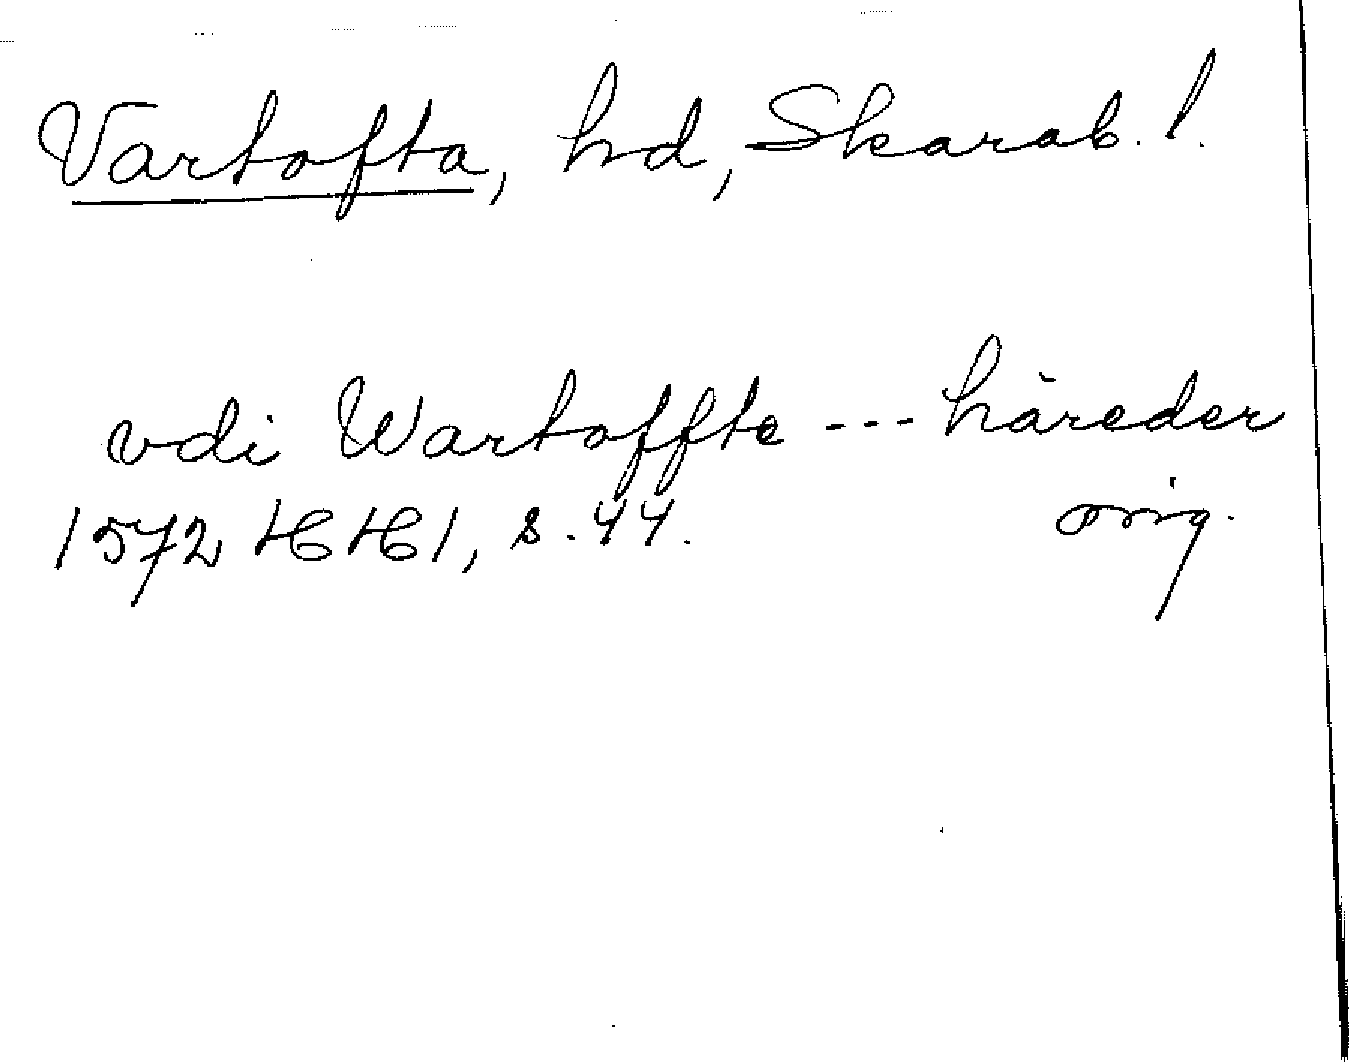 Vartofta, hd, Skarab. l.
vdi Wartoffte --- häreder
1572 HH 1, s. 44. orig.